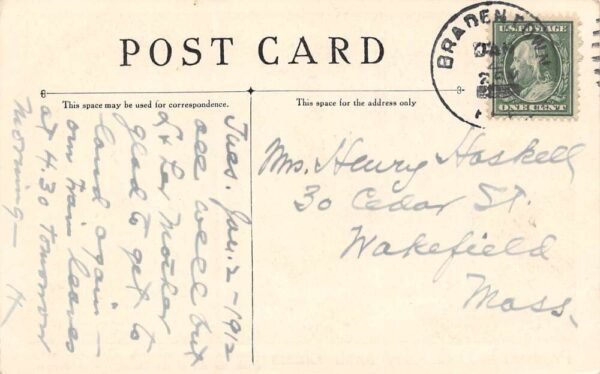 POST CARD
This space may be used for correspondence.
This space for the address only
Tues. Jan. 2 – 1912
all well but
& her Mother
glad to get to
land again –
our train leaves
at 4.30 tomorrow
morning – H
Mrs. Henry Haskell
30 Cedar St.
Wakefield
Mass.
BRADENTOWN
JAN
U.S. POSTAGE
ONE CENT